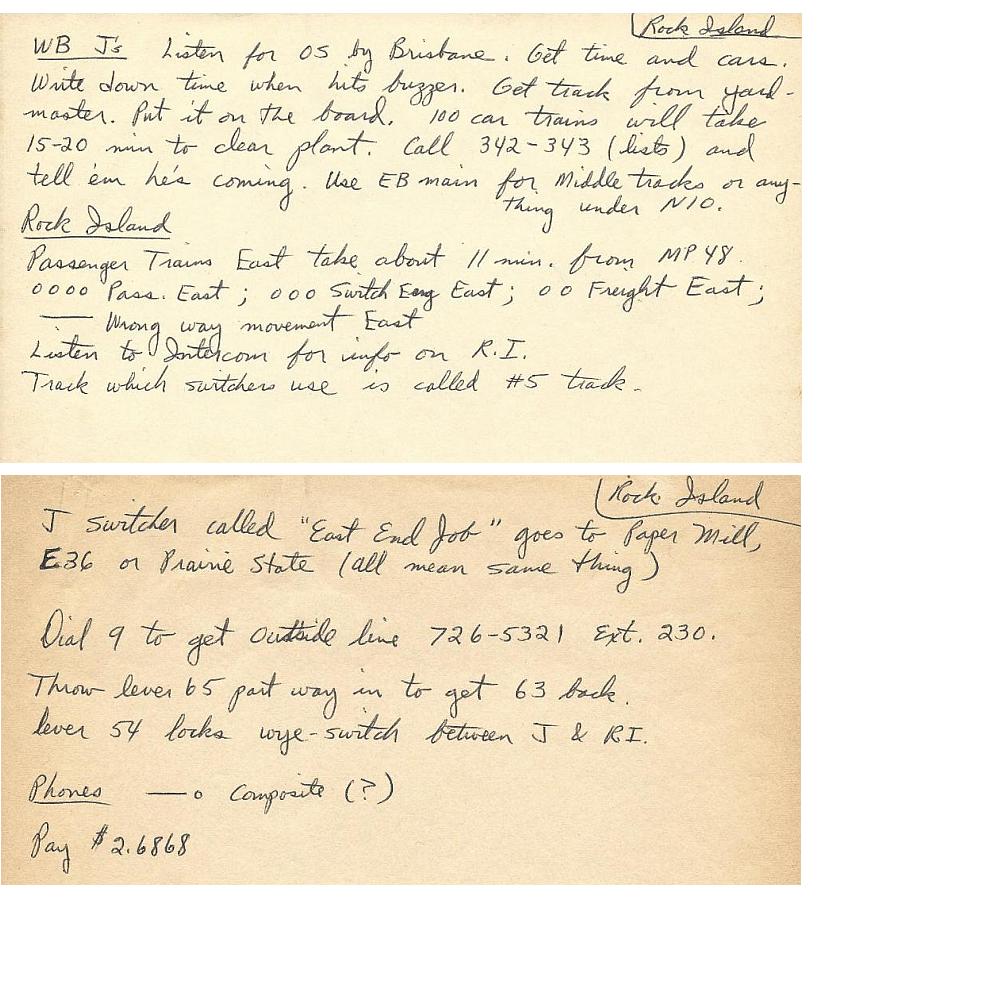 Rock Island
WB J's Listen for OS by Brisbane. Get time and cars.
Write down time when hits buzzer. Get track from yard-
master. Put it on the board. 100 car trains will take
15-20 min to clear plant. Call 342-343 (lists) and
tell 'em he's coming. Use EB main for Middle tracks or any-
thing under N10.
Rock Island
Passenger Trains East take about 11 min. from MP 48.
0000 Pass. East; 000 Switch Eng East; 00 Freight East;
— Wrong way movement East
Listen to Intercom for info on R.I.
Track which switchers use is called #5 track.
Rock Island
J switcher called "East End Job" goes to Paper Mill,
E36 or Prairie State (all mean same thing)
Dial 9 to get outside line 726-5321 Ext. 230.
Throw lever 65 part way in to get 63 back.
lever 54 locks wye-switch between J & RI.
Phones —o Composite (?)
Pay $2.6868